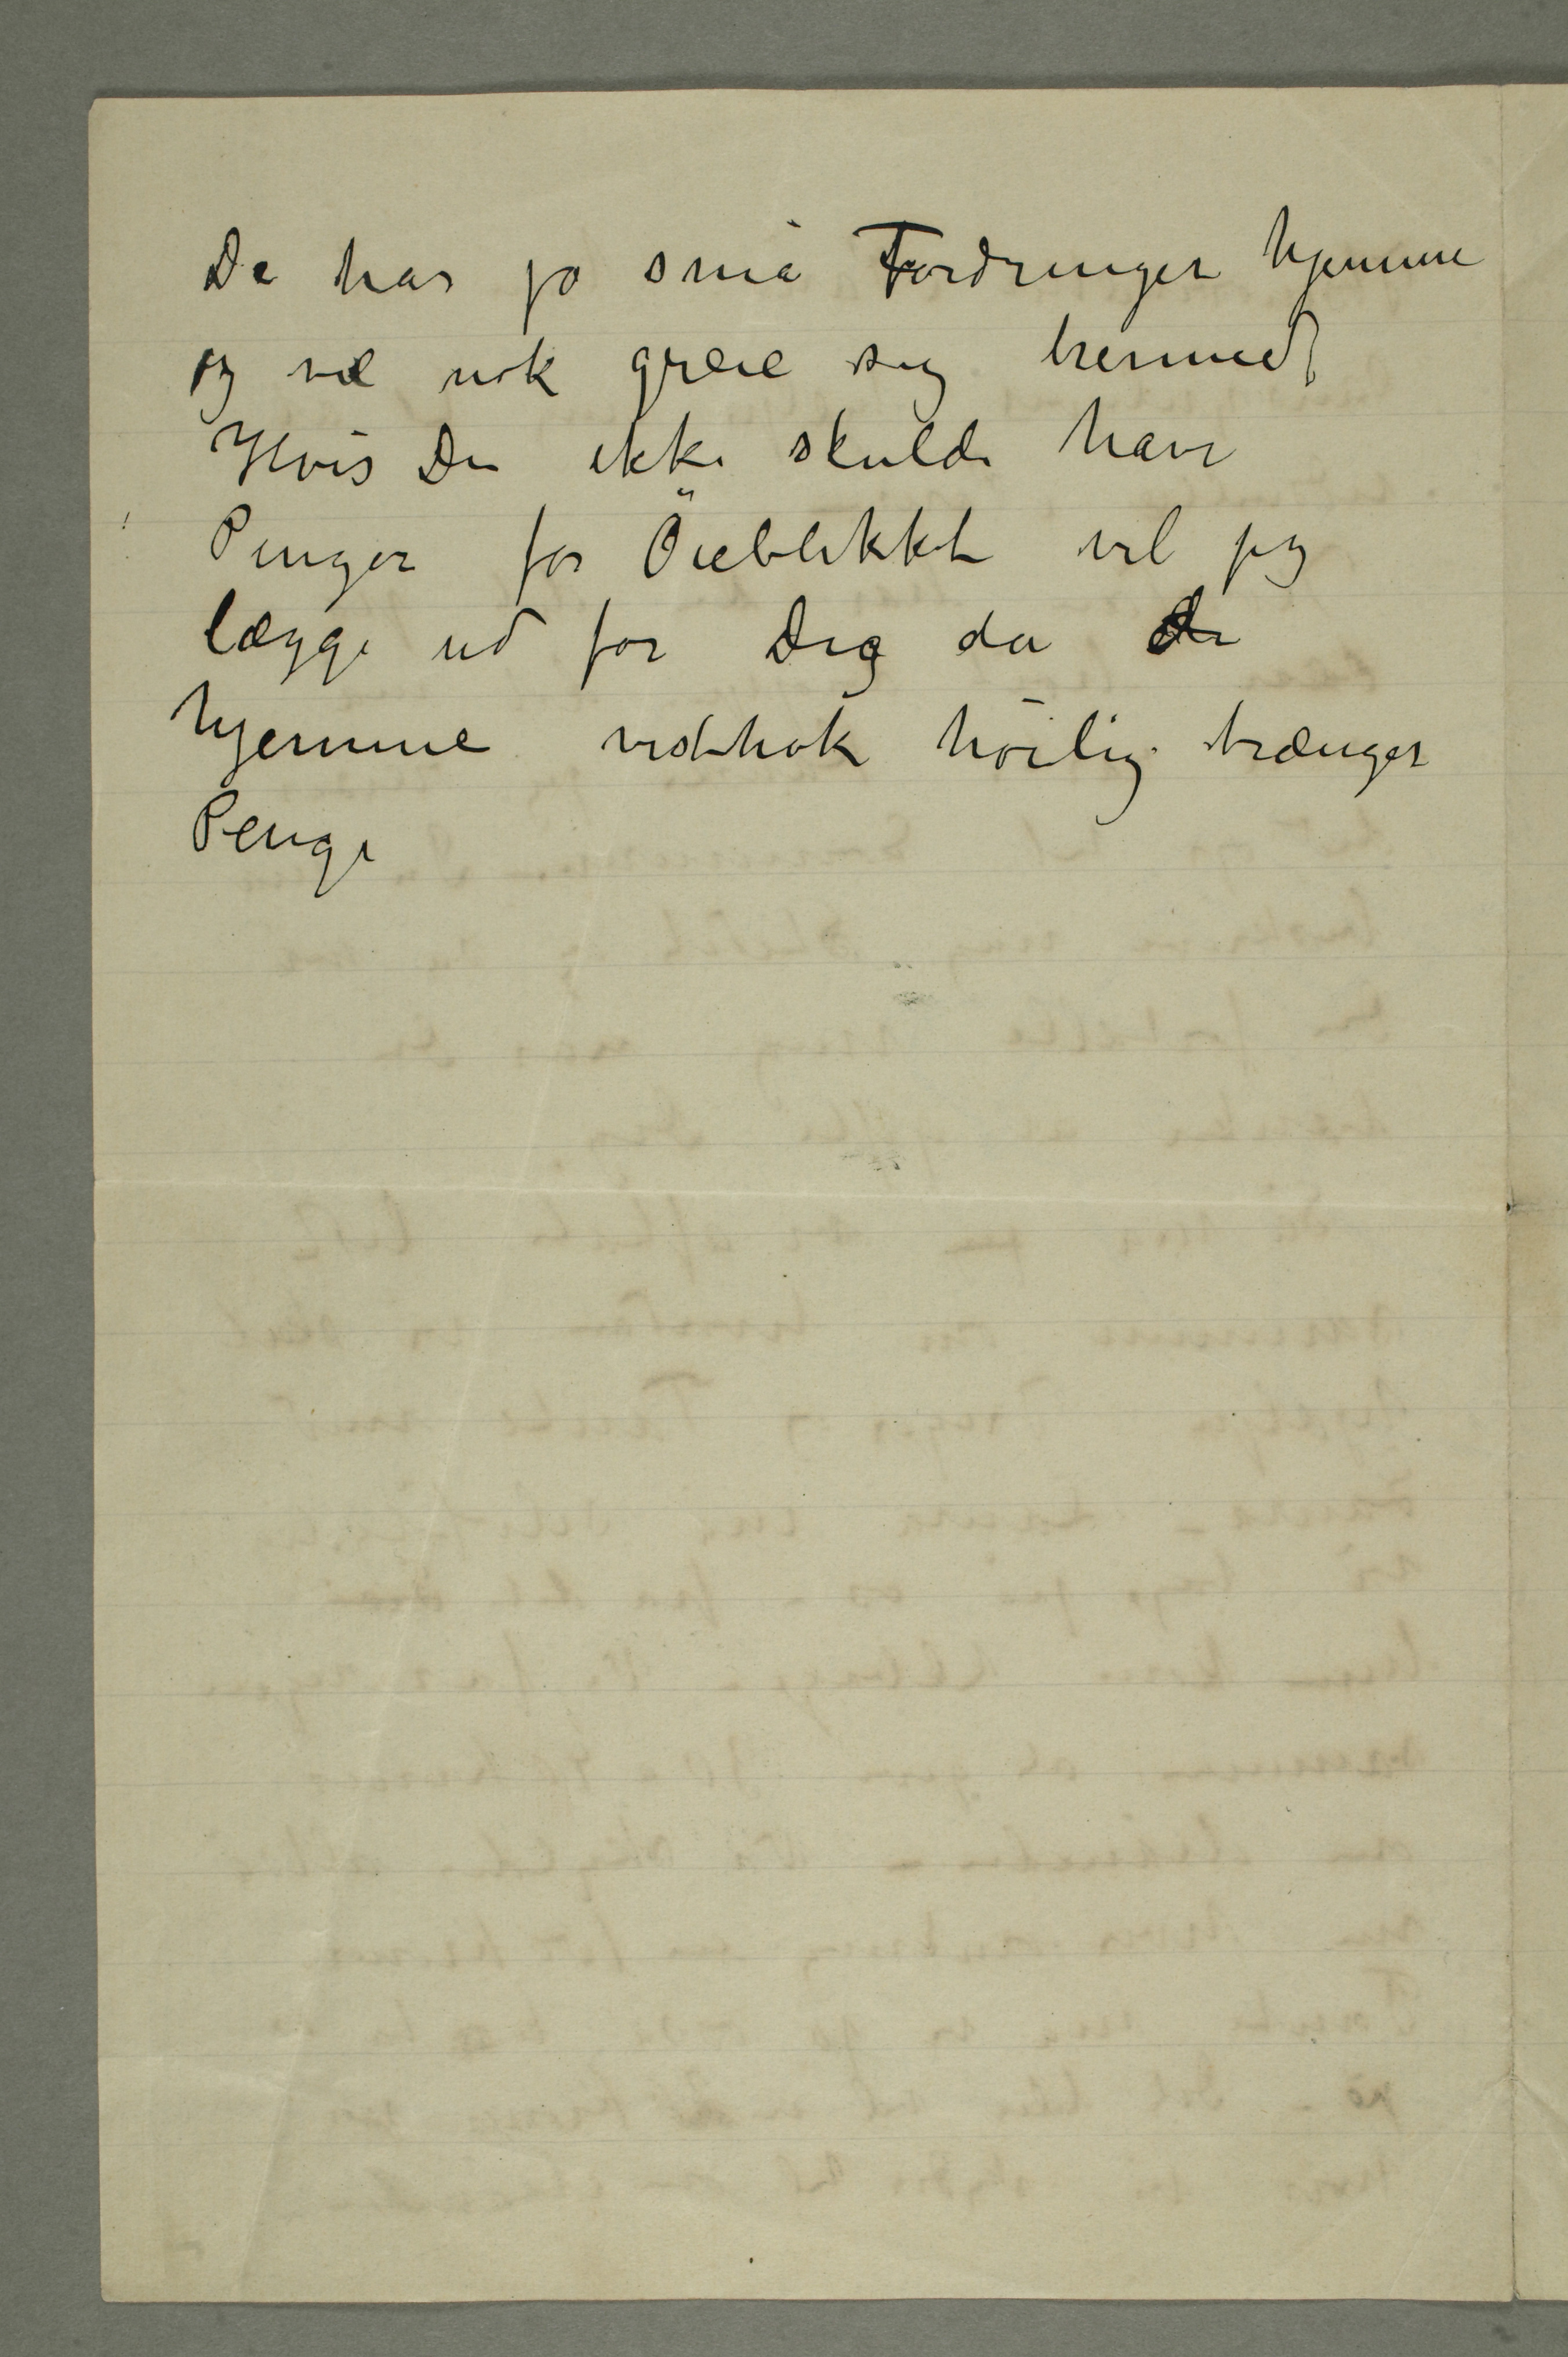 De har jo små Fordringer hjemme
og vil nok greie sig hermed
Hvis Du ikke skulde have
Penger for Öieblikket vil jeg
lægge ud for Dig da de
hjemme vistnok höilig trænger
Penge